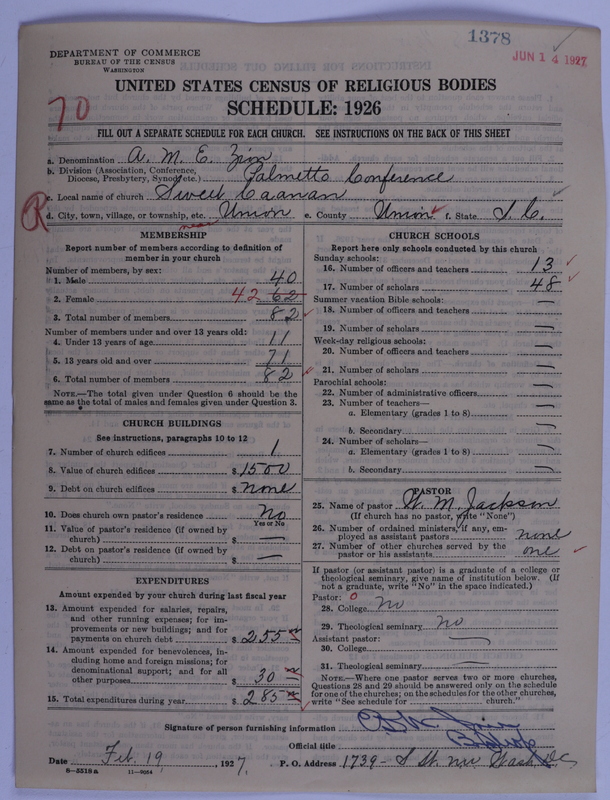 1378
JUN 14 1927
DEPARTMENT OF COMMERCE
BUREAU OF THE CENSUS
WASHINGTON
UNITED STATES CENSUS OF RELIGIOUS BODIES
SCHEDULE: 1926
70
FILL OUT A SEPARATE SCHEDULE FOR EACH CHURCH. SEE INSTRUCTIONS ON THE BACK OF THIS SHEET
a. Denomination A. M. E. Zion
b. Division (Association, Conference, Diocese, Presbytery, Synod, etc.) Palmetto Conference
c. Local name of church Sweet Caanan
R d. City, town, village, or township, etc. near Union e. County Union f. State S. C.
MEMBERSHIP
Report number of members according to definition of member in your church
Number of members, by sex:
1. Male 40
2. Female 42 62
3. Total number of members 82
Number of members under and over 13 years old:
4. Under 13 years of age 11
5. 13 years old and over 71
6. Total number of members 82
NOTE.—The total given under Question 6 should be the same as the total of males and females given under Question 3.
CHURCH BUILDINGS
See instructions, paragraphs 10 to 12
7. Number of church edifices 1
8. Value of church edifices $ 1500
9. Debt on church edifices $ none
10. Does church own pastor's residence No
Yes or No
11. Value of pastor's residence (if owned by church) $ —
12. Debt on pastor's residence (if owned by church) $ —
EXPENDITURES
Amount expended by your church during last fiscal year
13. Amount expended for salaries, repairs, and other running expenses; for improvements or new buildings; and for payments on church debt $ 255
14. Amount expended for benevolences, including home and foreign missions; for denominational support; and for all other purposes $ 30
15. Total expenditures during year $ 285
CHURCH SCHOOLS
Report here only schools conducted by this church
Sunday schools:
16. Number of officers and teachers 13
17. Number of scholars 48
Summer vacation Bible schools:
18. Number of officers and teachers —
19. Number of scholars —
Week-day religious schools:
20. Number of officers and teachers —
21. Number of scholars —
Parochial schools:
22. Number of administrative officers —
23. Number of teachers—
a. Elementary (grades 1 to 8) —
b. Secondary —
24. Number of scholars—
a. Elementary (grades 1 to 8) —
b. Secondary —
PASTOR
25. Name of pastor W. M. Jackson
(If church has no pastor, write "None")
26. Number of ordained ministers, if any, employed as assistant pastors none
27. Number of other churches served by the pastor or his assistants one
If pastor (or assistant pastor) is a graduate of a college or theological seminary, give name of institution below. (If not a graduate, write "No" in the space indicated.)
Pastor: 0
28. College No
29. Theological seminary No
Assistant pastor:
30. College —
31. Theological seminary —
NOTE.—Where one pastor serves two or more churches, Questions 28 and 29 should be answered only on the schedule for one of the churches; on the schedules for the other churches, write "See schedule for ........ church."
Signature of person furnishing information
Official title Bishop
Date Feb. 19, 1927. P. O. Address 1739- S St. NW Wash DC
8—5518a 11—9064